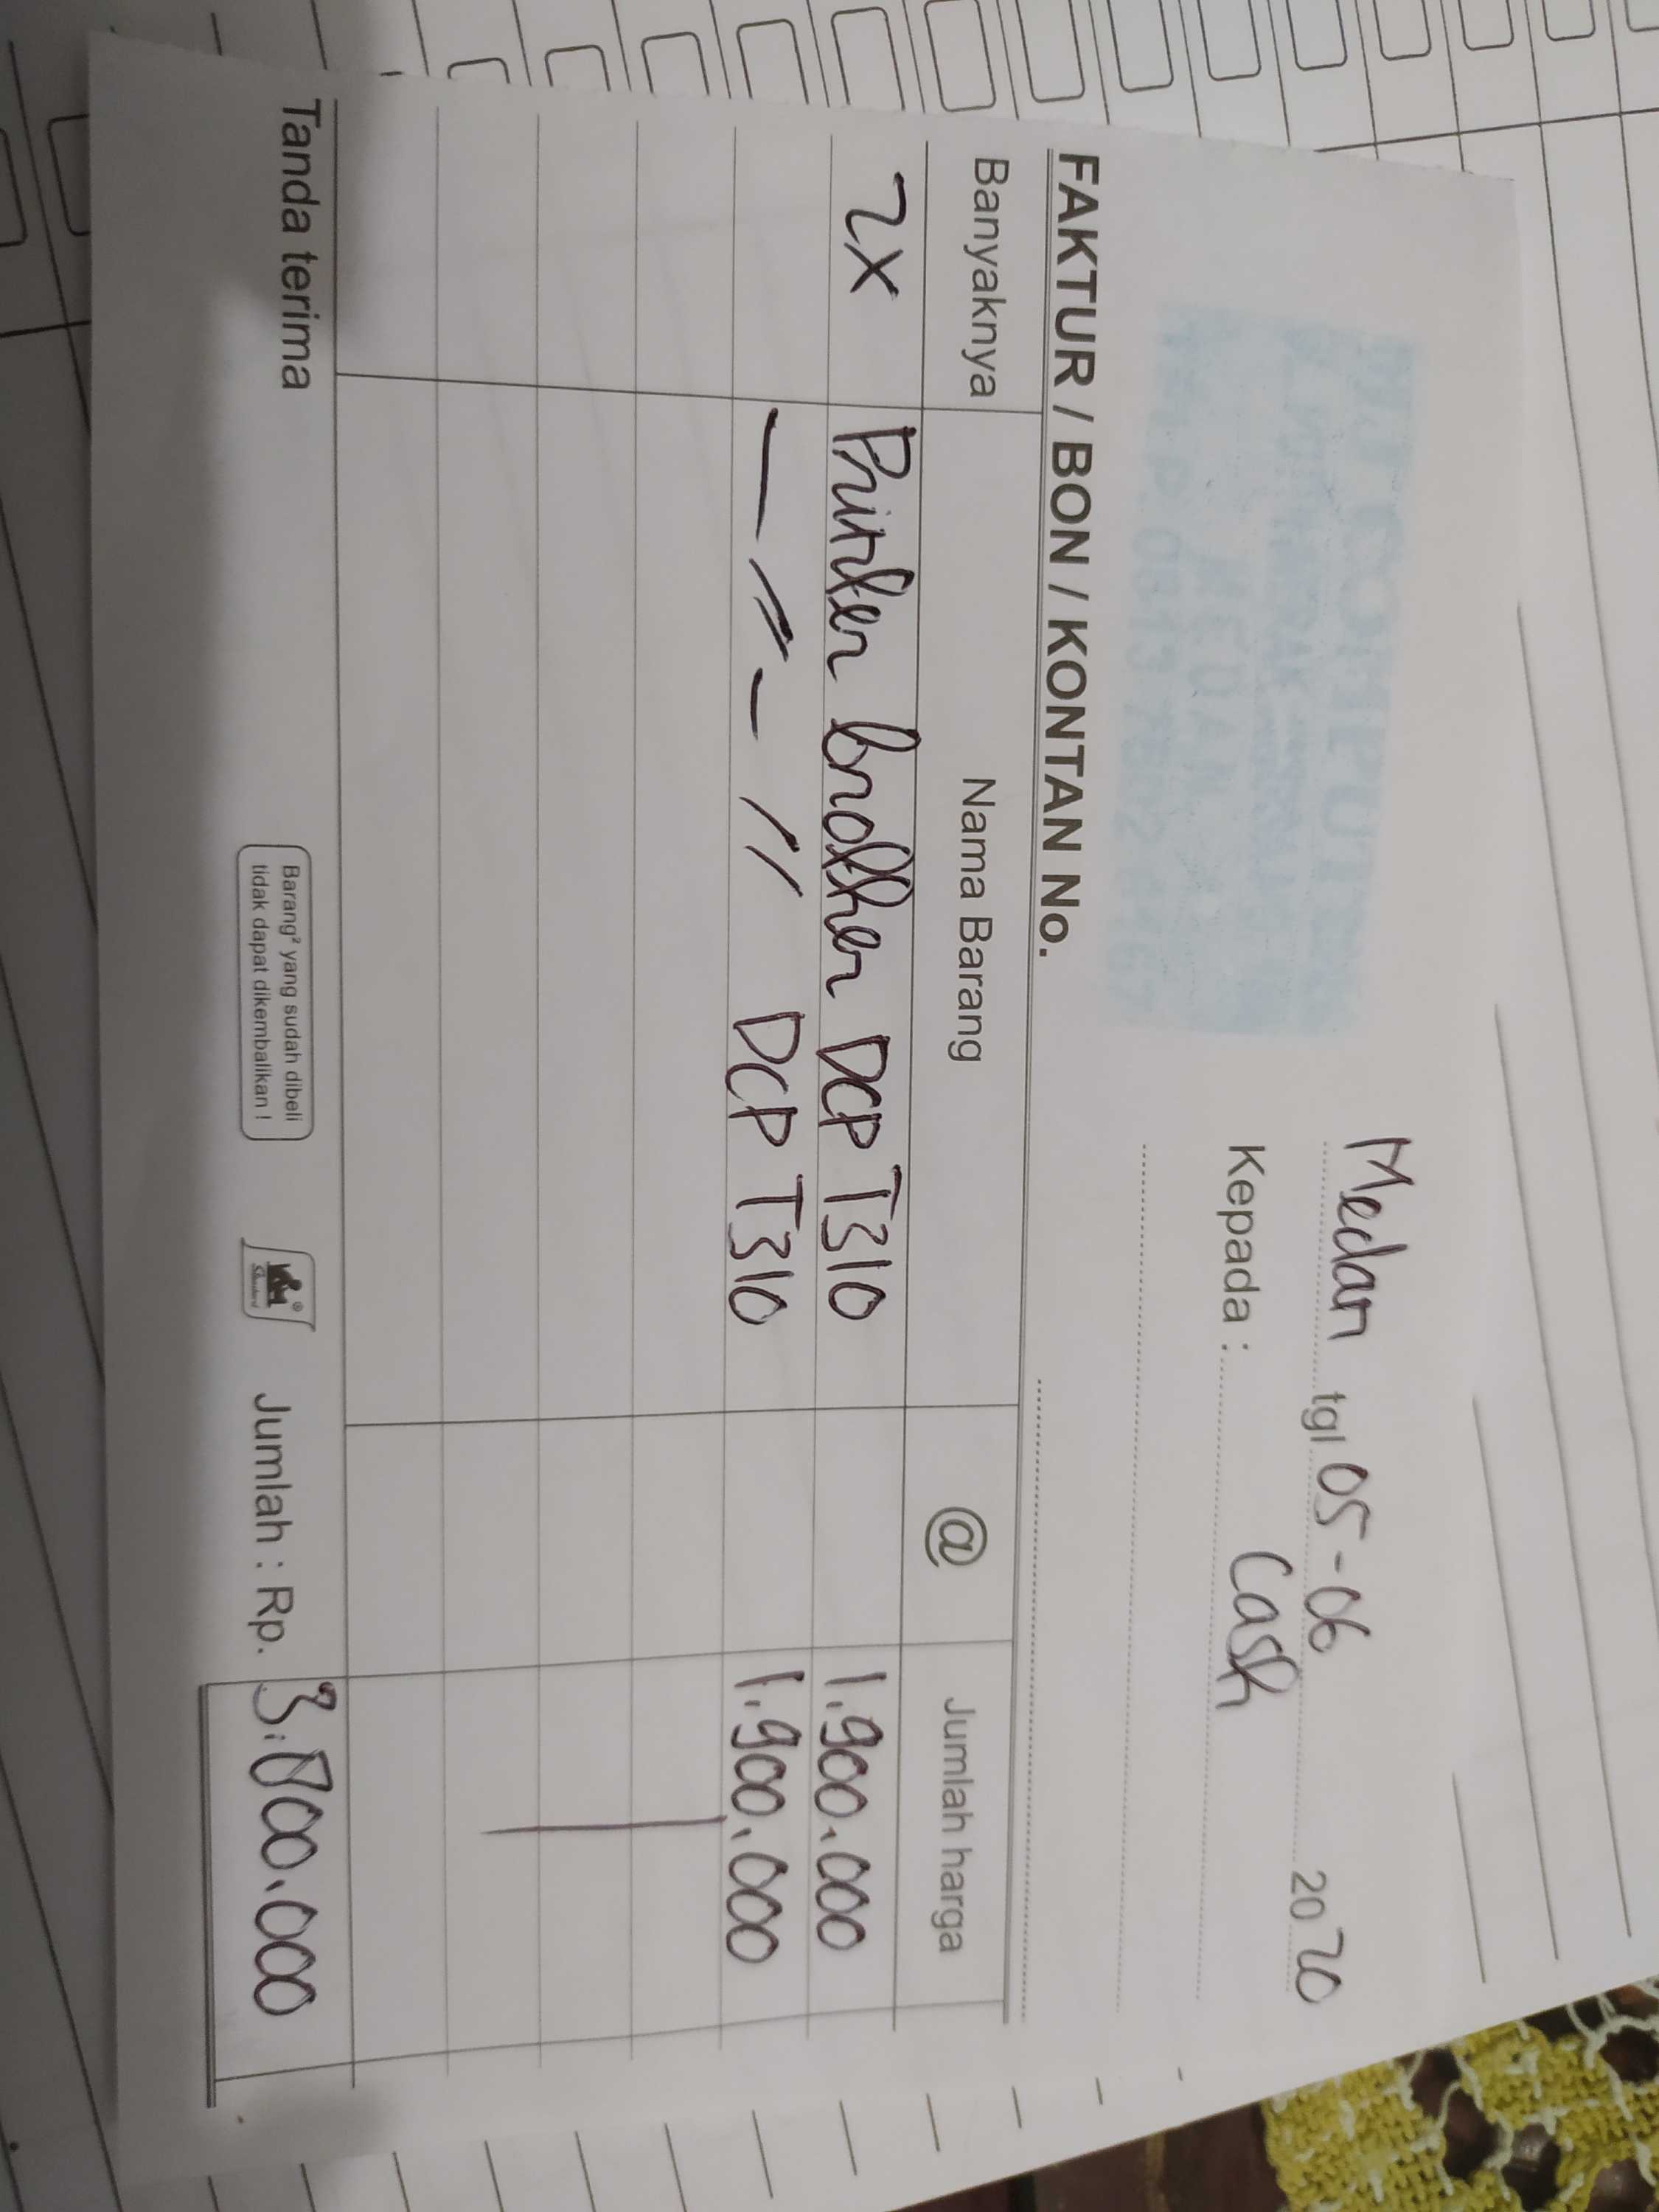 Medan tgl 05-06 2020
Kepada : Cash
COMPUTER
MEDAN
FAKTUR / BON / KONTAN No.
Banyaknya Nama Barang @ Jumlah harga
2X Printer brother DCP T310 1.900.000
— // — // DCP T310 1.900.000
Tanda terima
Barang² yang sudah dibeli
tidak dapat dikembalikan !
Jumlah : Rp. 3.800.000